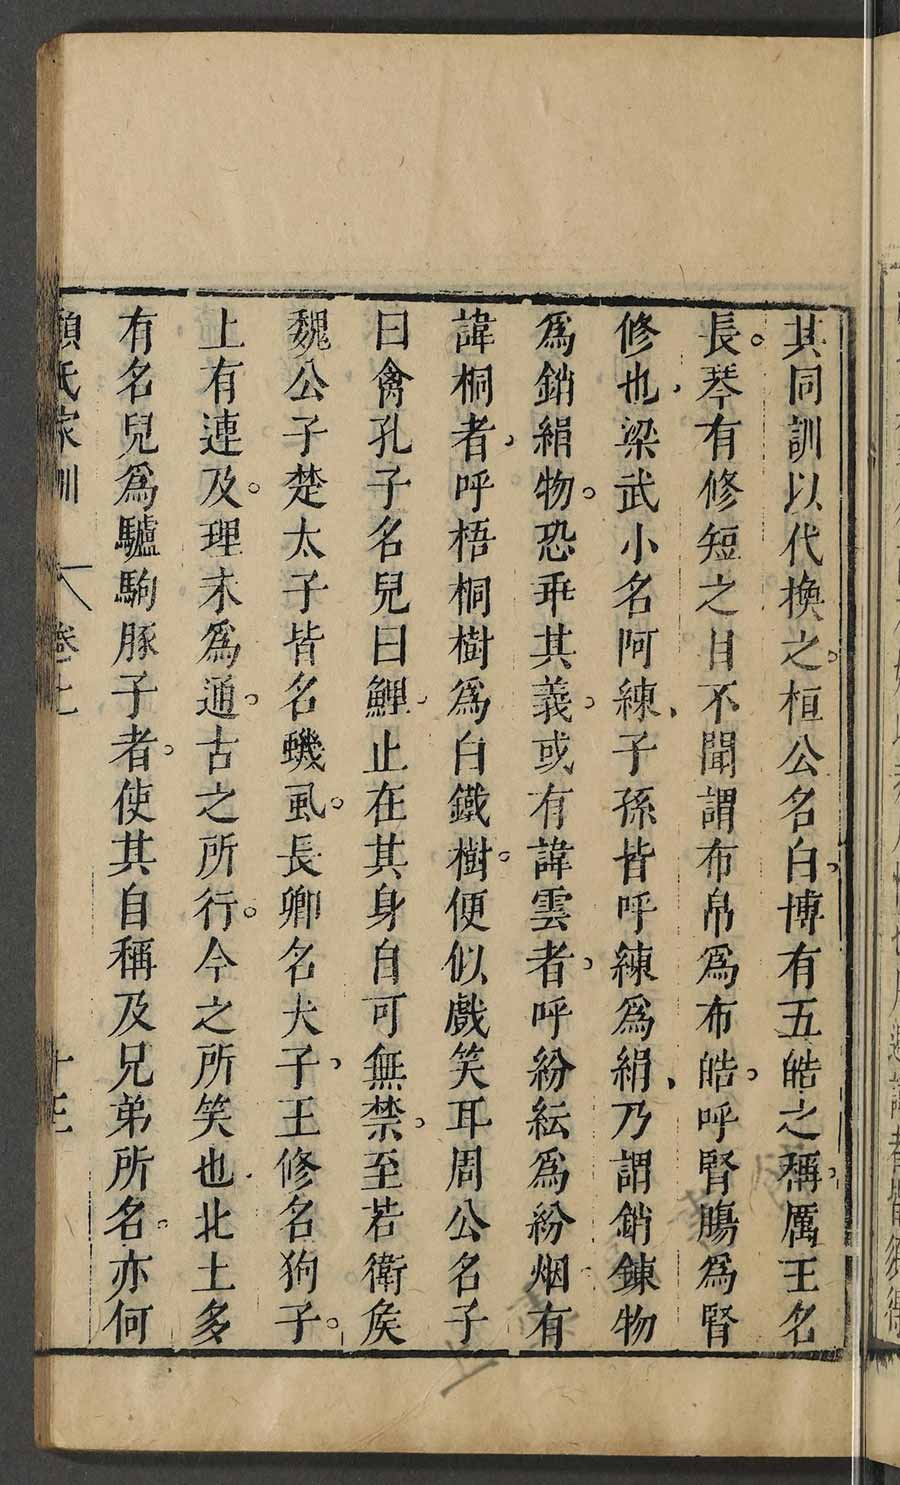 其同訓以代換之桓公名白博有五皓之稱厲王名
長琴有修短之目不聞謂布帛爲布皓呼腎腸爲腎
修也梁武小名阿練子孫皆呼練爲絹乃謂銷鍊物
爲銷絹物恐乖其義或有諱雲者呼紛紜爲紛烟有
諱桐者呼梧桐樹爲白鐵樹便似戲笑耳周公名子
曰禽孔子名兒曰鯉止在其身自可無禁至若衛矦
魏公子楚太子皆名蟣虱長卿名犬子王修名狗子
上有連及理未爲通古之所行今之所笑也北土多
有名兒爲驢駒豚子者使其自稱及兄弟所名亦何
顔氏家訓 卷七 十三